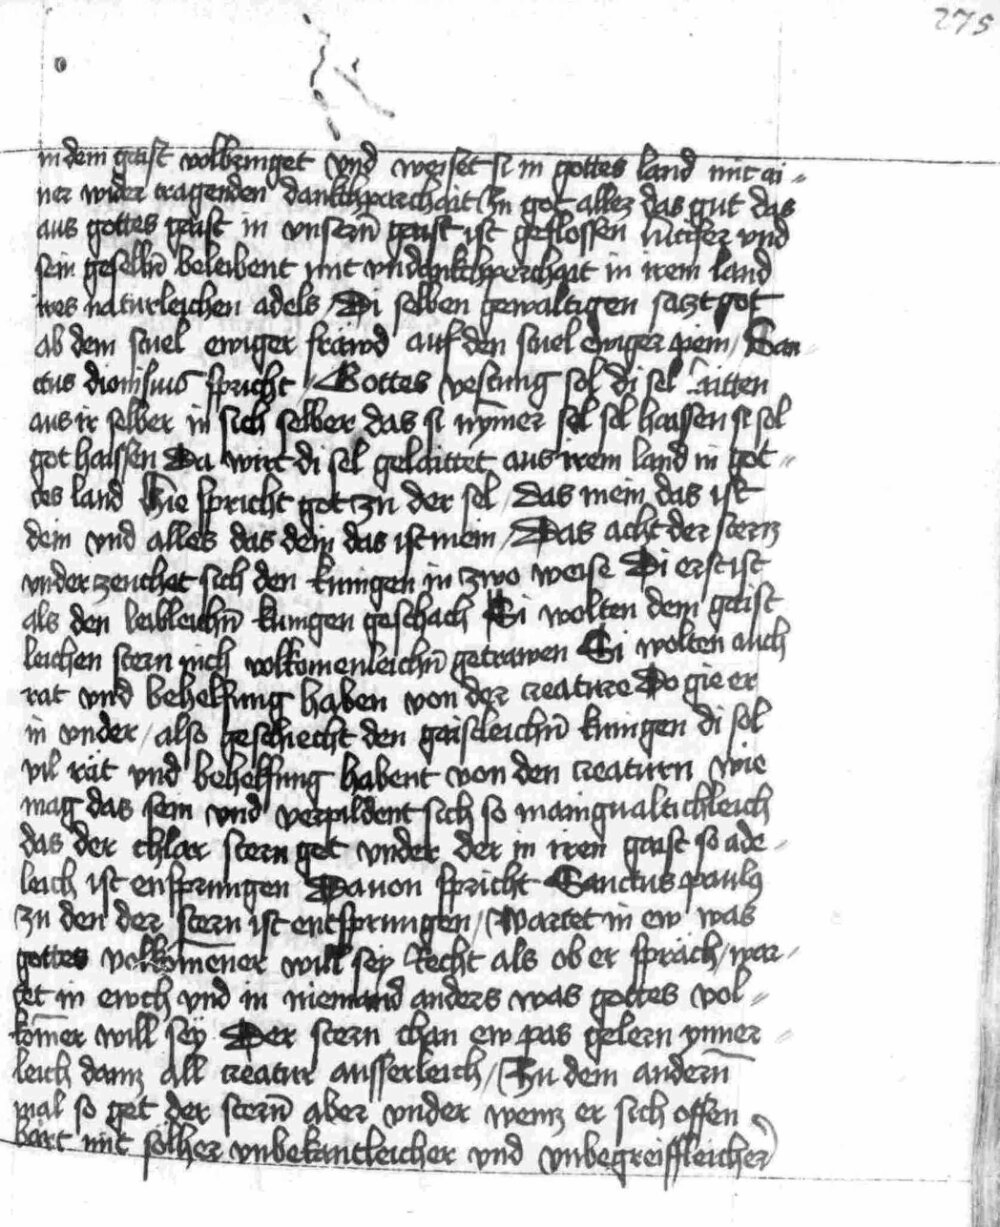 275
in dem gaist volbringet vnd weiset si in gottes land mit ai-
ner wider tragenden dankchperchait Zu got allez das gut das
aus gottes gaist in vnsern̄ gaist ist geflossen lucifer vnd
sein geselln̄ beleibent mit vndankchperchait in irem land
ires naturleichen adels / Di selben gewaltigen satzt got
ab dem stuel ewiger fräwd auf den stuel ewiger pein / San-
ctus dionisius spricht / Gottes vestung sol di sel laitten
aus ir selber in sich selber das si nym̄er sol sel haissen si sol
got haissen Da wirt di sel gelaittet aus irem land in got-
tes land Hie spricht got zu der sel / Das mein das ist
dein vnd alles das dein das ist mein / Das acht der stern
vnder zeuchet sich den kunigen in zwo weise Di erst ist
als den leibleichn̄ kunigen geschach Si wolten dem gaist
leichen stern nich volkomenleichn̄ getrawen Si wolten auch
rat vnd behelfung haben von der creature Do gie er
in vnder / also geschiecht den gaistleichn̄ kunigen di sol
vil rät vnd behelffung habent von den creaturn wie
mag das sein vnd verpildent sich so manigualtichleich
das der chlar stern get vnder der in iren gaist so ade-
leich ist ensprungen Dauon spricht Sanctus paulus
zu den der stern ist entsprungen / Wartet in ew was
gottes volkom̄ener will sey Recht als ob er spräch / war-
tet in ewch vnd in niemand anders was gottes vol-
kom̄er will sey Der stern chan ew pas gelern ynner-
leich dann all creatur ausserleich / Zu dem andern̄
mal so get der stern̄ aber vnder wenn er sich offen
bart mit solher vnbekantleicher vnd vnbegreiffleicher